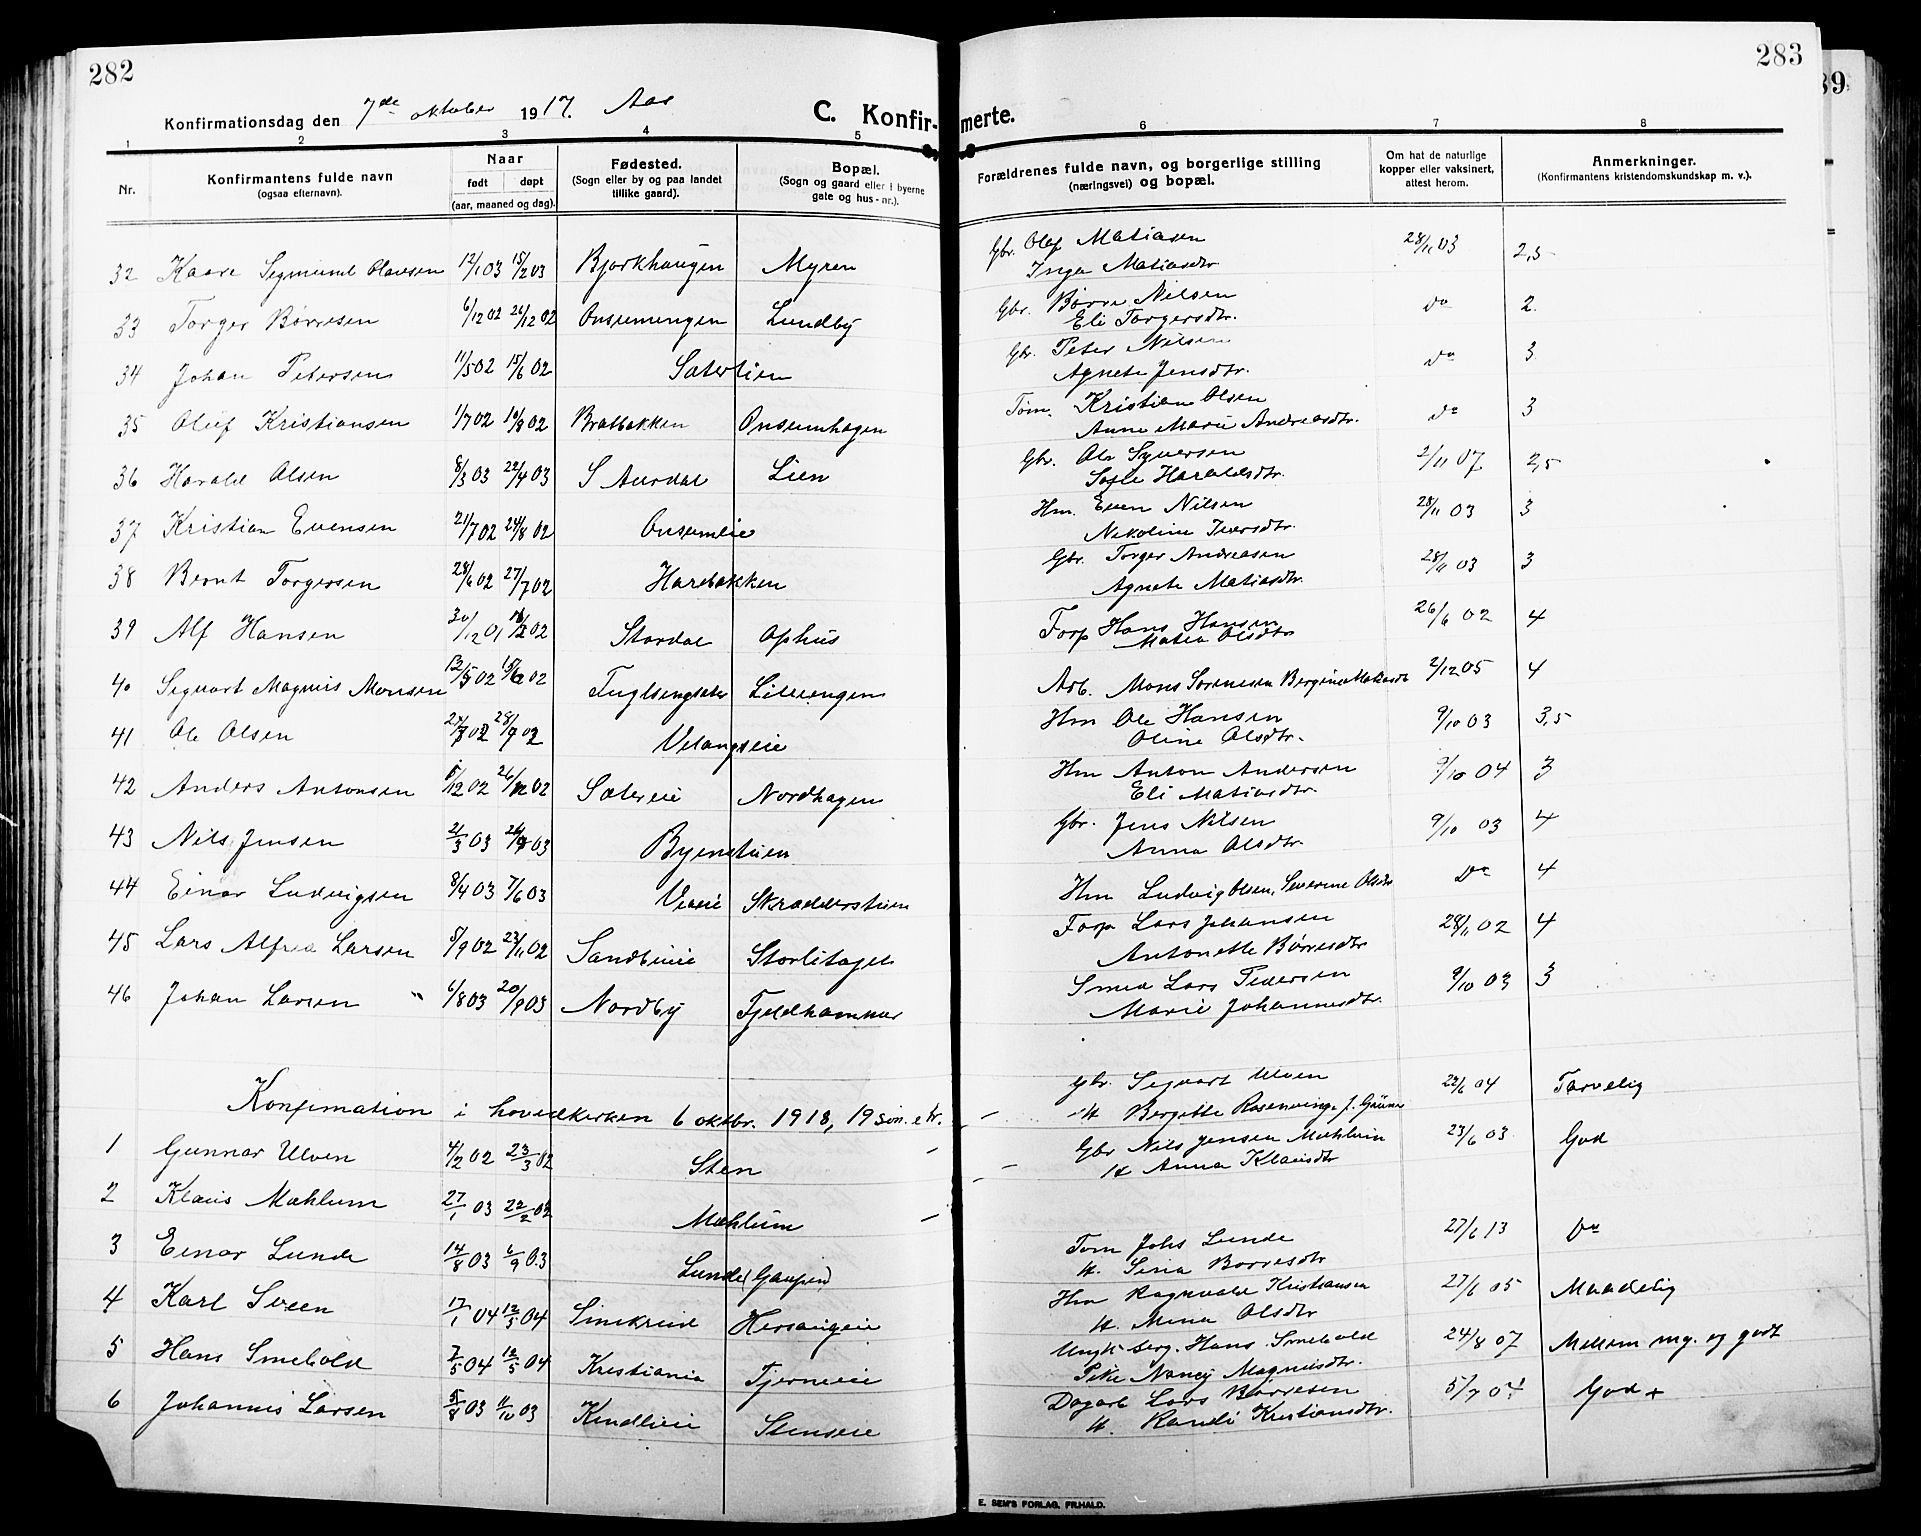 282
283
39
Konfirmationsdag den 7de oktober 1917. Aas
C. Konfir-merte.
1 2 3 4 5 6 7 8
Nr.
Konfirmantens fulde navn
(ogsaa efternavn).
Naar
født døpt
(aar, maaned og dag).
Fødested.
(Sogn eller by og paa landet
tillike gaard).
Bopæl.
(Sogn og gaard eller i byerne
gate og hus-nr.).
Forældrenes fulde navn, og borgerlige stilling
(næringsvei) og bopæl.
Om hat de naturlige
kopper eller vaksinert,
attest herom.
Anmerkninger.
(Konfirmantens kristendomskundskap m. v.).
32 Kaare Segmund Olausen 12/1 03 15/2 03 Bjørkhaugen Myren Gbr. Olaf Matiasen 28/11 03 2,5
Inga Matiasdtr.
33 Torger Børresen 6/12 02 26/12 02 Onsumengen Lundby Gbr. Børre Nilsen do 2.
Eli Torgersdtr.
34 Johan Petersen 11/5 02 15/6 02 Sæterlien Gbr. Peter Nilsen do 3
Agnete Jensdtr.
35 Oluf Kristiansen 1/7 02 10/8 02 Bratbakken Onsumhagen Tøm. Kristian Olsen do 3
Anne Marie Andreasdtr.
36 Harald Olsen 8/3 03 22/4 03 S Aurdal Lien Gbr. Ole Syversen 2/11 07 2,5
Haraldsdtr.
37 Kristian Evensen 21/7 02 24/8 02 Onsumeie Hm. Even Nilsen 28/11 03 3
Nikoline Iversdtr.
38 Bernt Torgersen 28/6 02 27/7 02 Harebakken Gbr. Torger Andreasen 28/11 03 3
Agnete Matiasdtr.
39 Alf Hansen 30/12 01 02 Stordal Ophus Forp Hans Hansen 26/6 02 4
Matea Olsdtr
40 Sigvart Magnus Monsen 12/5 02 15/6 02 Fuglsengseter Lilleengen Arb. Mons Sørensen Bergine 2/12 05 4
41 Ole Olsen 02 28/9 02 Velangseie Hm Ole Hansen 9/10 03 3,5
Oline Olsdtr.
42 Anders Antonsen 5/12 02 26/12 02 Sætereie Nordhagen Hm Anton Andersen 9/10 04 3
Eli Matiasdtr.
43 Nils Jensen 2/3 03 03 Byenstuen Gbr. Jens Nilsen 9/10 03 4
Anna Olsdtr.
44 Einar Ludvigsen 8/4 03 7/6 03 Veaeie Skrædderstuen Hm Ludvig Olsen, Severine Olsdtr Do 4
45 Lars Alfred Larsen 5/9 02 23/11 02 Sandbueie Forp Lars Johansen 28/11 02 4
Antonette Børresdtr
46 Johan Larsen " 6/8 03 20/9 03 Nordby Fjeldhammer Smed Lars Pedersen 9/10 03 3
Marie Johannesdtr.
Konfirmation i hovedkirken 6 oktbr. 1918, 19 søn. e tr.
1 Gunnar Ulven 4/2 02 23/3 02 Sten Gbr. Sigvart Ulven 23/6 04 Tarvelig
H Bergitte Rosenvinge f.
2 Klaus Mæhlum 27/1 03 22/2 03 Mæhlum Gbr Nils Jensen Mæhlum 23/6 03 God
H Anna Klausdtr
3 Einar Lunde 14/8 03 6/9 03 Lunde (Gaupen) Tøm Johs Lunde 27/6 13 Do
H. Sina Børresdtr
4 Karl Sveen 17/1 04 12/5 04 Simkrud Hersaugeie Hm Ragnvald Kristiansen 27/6 05 Maadelig
H. Mina Olsdtr
5 Hans Smebold 2/5 04 12/5 04 Kristiania Tjerneeie Ungk. serg. Hans Smebold 24/8 07 Mellem mg. og godt
Pike Nancy Magnusdtr.
6 Johannes Larsen 5/8 03 11/10 03 Kindlieie Stenseie Dagarb Lars Børresen 5/7 04 God +
H. Randi Kristiansdtr.
E. SEM'S FORLAG, FR.HALD.